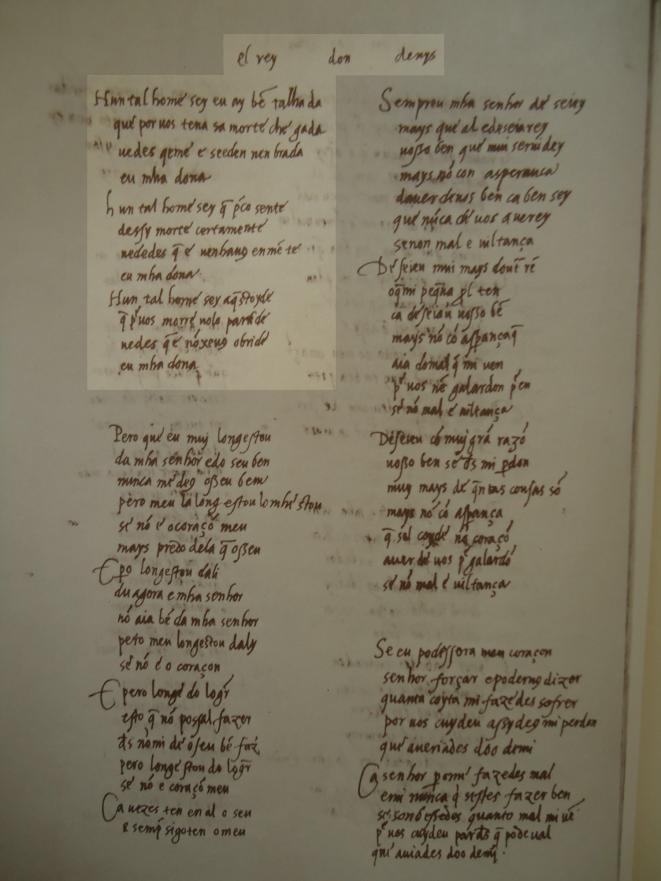 el rey don denys
Hun tal home sey eu ay bẽ talhada
que por uos tena sa morte chegada
uedes quemé e seeden nenbrada
eu mha dona
hun tal home sey q̃ p̃co sente
dessy morte certamente
uededes q̃ e uenhauos enmẽte
eu mha dona
Hun tal home sey aq̃stoyde
q̃ p̃uos morre
uedes q̃ e nõxeuos obride
eu mha dona
Pero que eu muj longestou
da mha senhor e do seu ben
nunca me de ds̃ o seu bem
pero meu la long estou
se nõ e o coraçõ meu
mays preto dela q̃ o seu
E pero longestou dali
du agora e mha senhor
nõ aia bẽ da mha senhor
pero meu longestou daly
se nõ e o coraçon
E pero longe do logr̃
esto q̃ nõ possal fazer
ds̃ nõ mi de o seu bẽ faz̃
pero longestou do logr̃
se nõ e coraçõ meu
Ca uezes ten en al o seu
e semp̃ sigo ten o meu
Sempreu mha senhor deseiey
mays que al e deseiarey
uosso ben que mui seruidey
mays nõ con asperança
dauer de uos ben ca ben sey
que nũca de uos auerey
senon mal e uiltança
Deseieu mui mays doutr̃ rẽ
o q̃ mi peq̃na p̃l ten
ca deseiau uosso bẽ
mays nõ cõ asp̃ança q̃
aia do mal q̃ mi uen
p̃ uos nẽ galardon p̃en
se nõ mal e uiltança
Deseieu cõ muj grã razõ
uosso ben se ds̃ mi p̃don
muy mays de q̃ntas cousas sõ
mays nõ cõ asp̃ança
q̃ sol coyde nõ coraçõ
auer de uos p̃ galardõ
se nõ mal e uiltança
Se eu podessora meu coraçon
senhor forçar e poderuos dizer
quanta coyta mi fazedes sofrer
por uos cuydeu assy ds̃ mi perdon
que aueriades doo de mi
Ca senhor p̃o me fazedes mal
e mi nunca q̃ sestes fazer ben
se soubessedes quanto mal mi uẽ
p̃ uos cuydeu par ds̃ q̃ pode ual
que auiades doo de mj